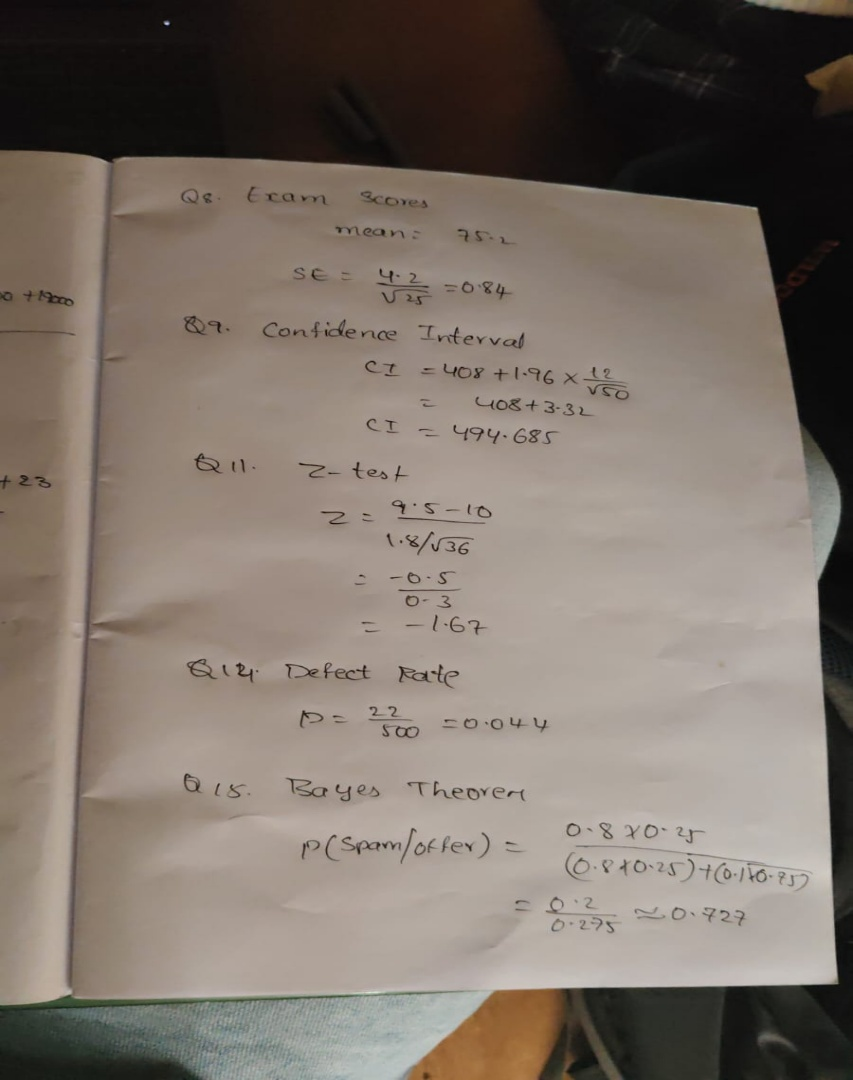 0 + 19000
+ 23
Q8. Exam Scores
mean = 75.2
SE = 4.2 / √25 = 0.84
Q9. Confidence Interval
CI = 408 + 1.96 × 12 / √50
= 408 + 3.32
CI = 494.685
Q11. Z-test
Z = 9.5 - 10 / 1.8/√36
= -0.5 / 0.3
= -1.67
Q14. Defect Rate
p = 22 / 500 = 0.044
Q15. Bayes Theorem
p(Spam/offer) = 0.8 × 0.25 / (0.8 × 0.25) + (0.1 × 0.75)
= 0.2 / 0.275 ≈ 0.727